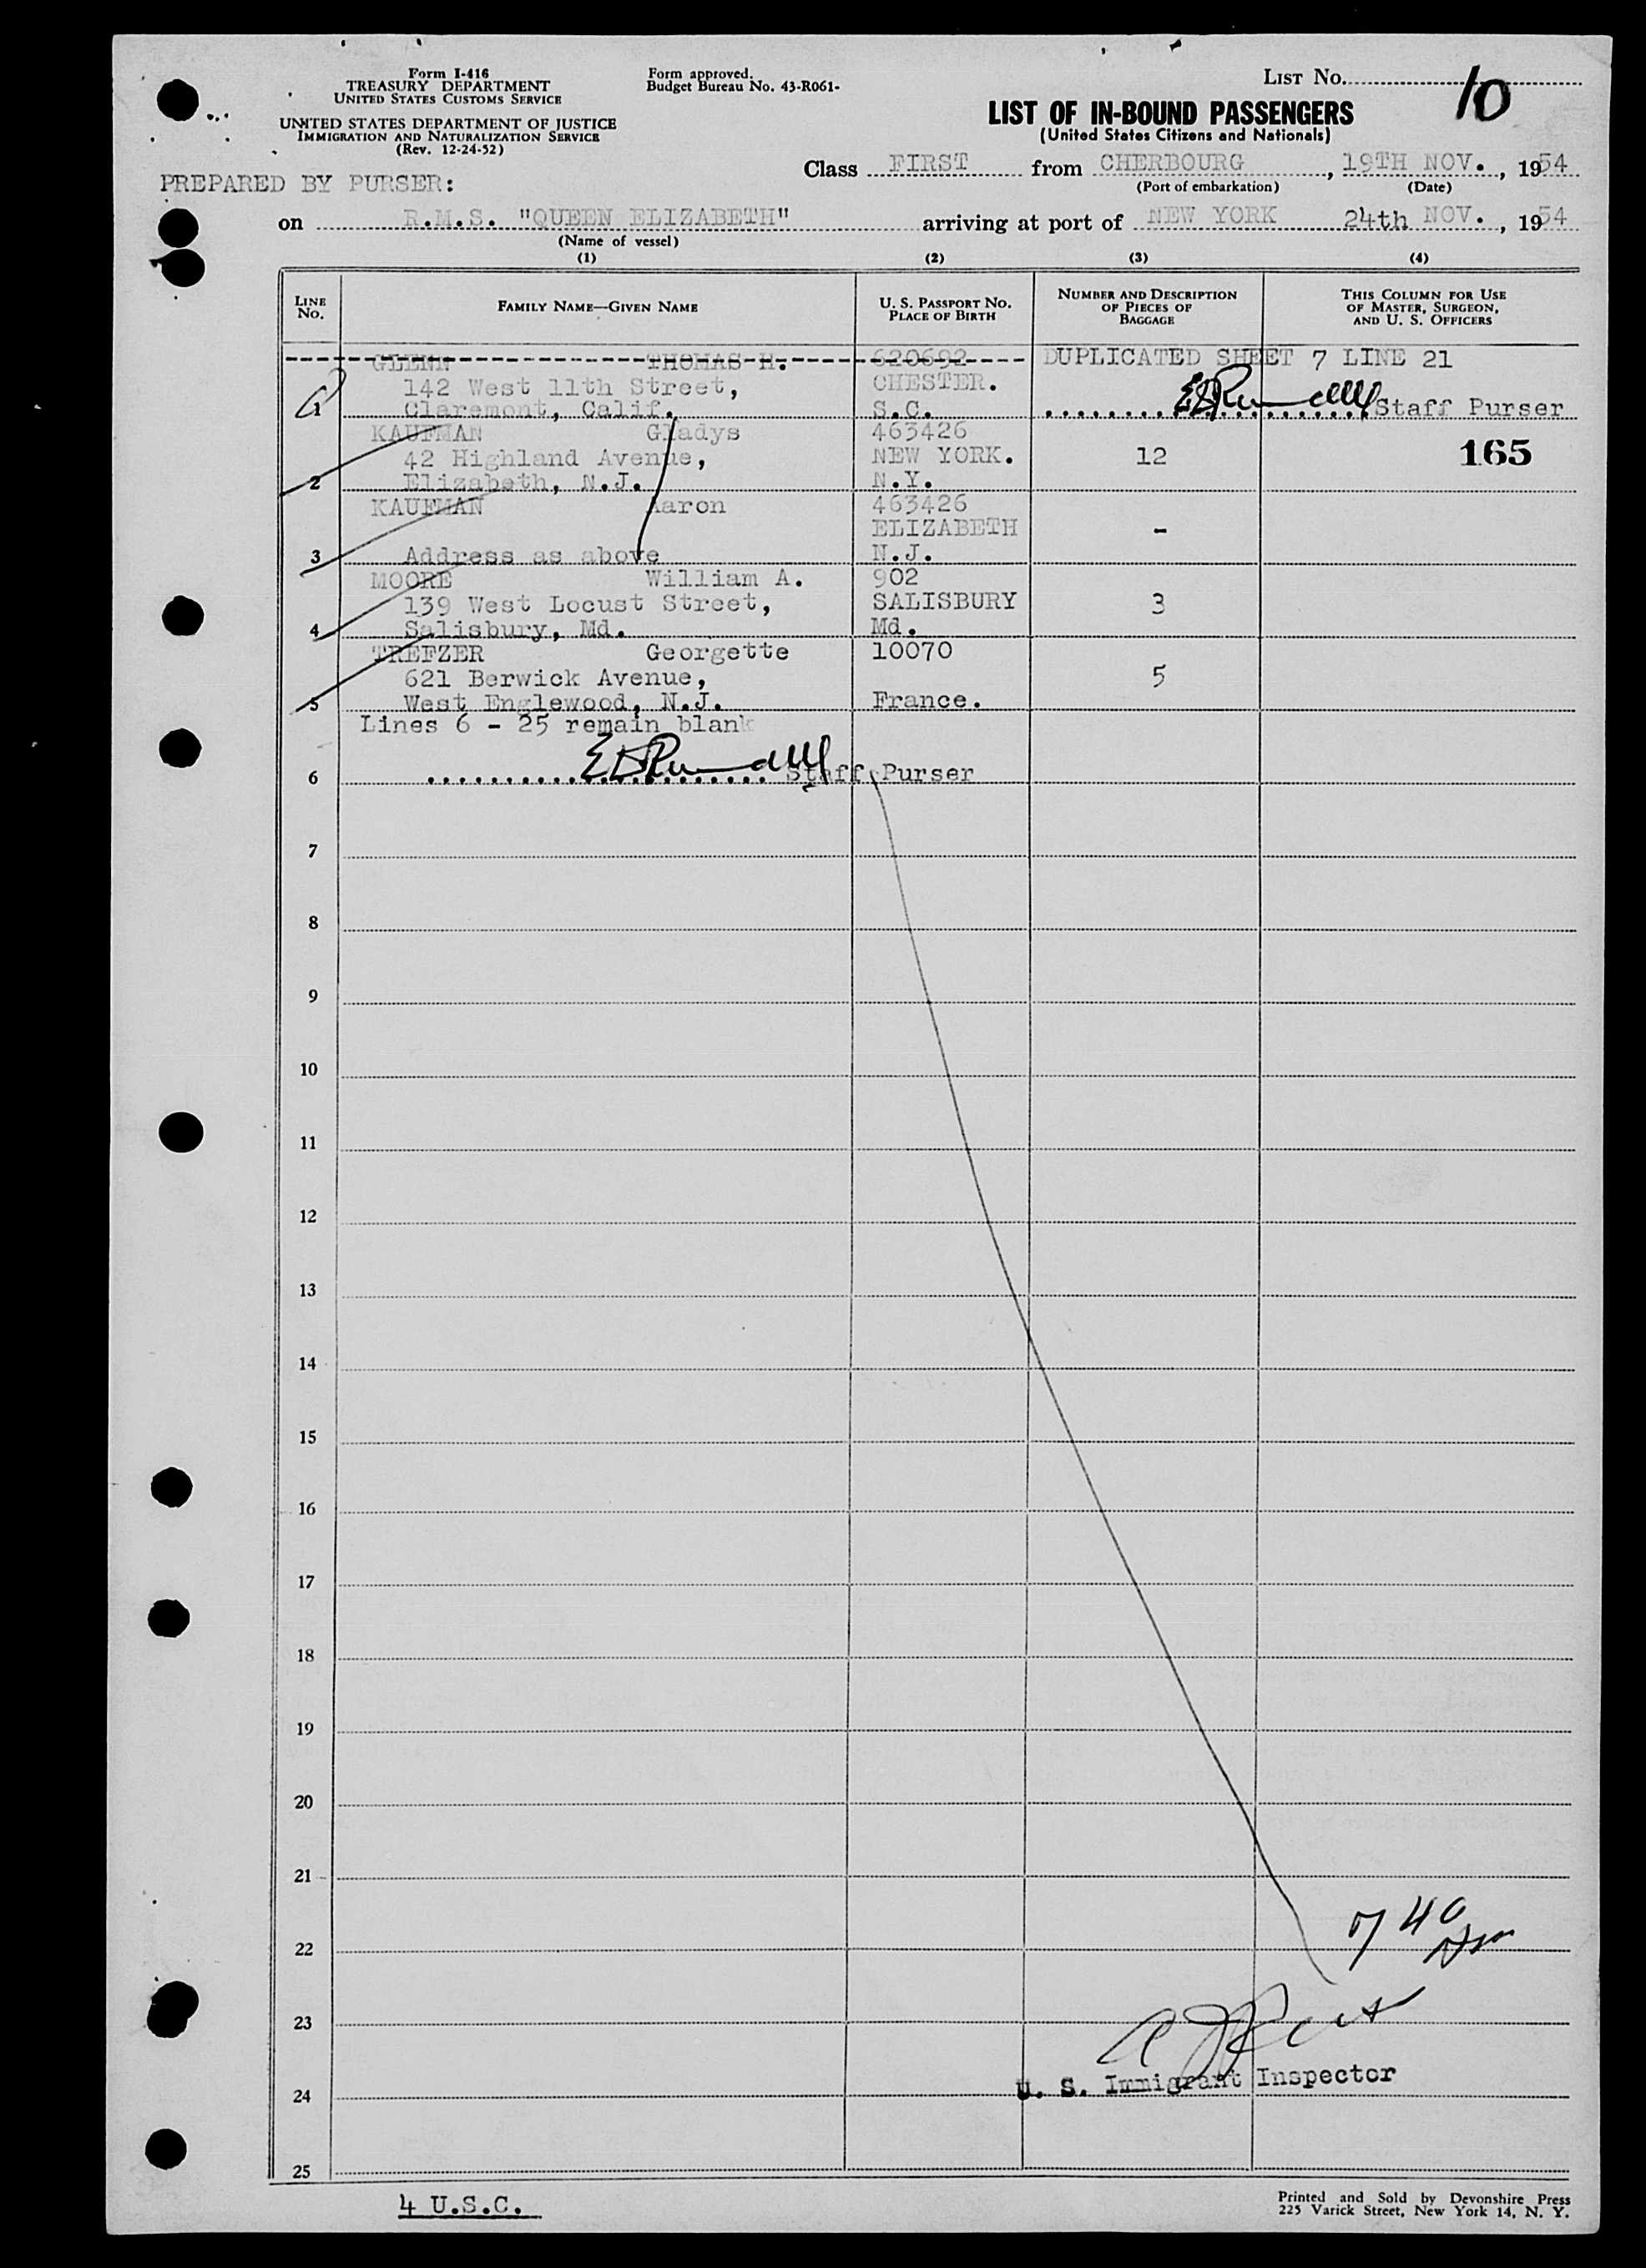 Form I-416
TREASURY DEPARTMENT
UNITED STATES CUSTOMS SERVICE
UNITED STATES DEPARTMENT OF JUSTICE
IMMIGRATION AND NATURALIZATION SERVICE
(Rev. 12-24-52)
Form approved.
Budget Bureau No. 43-R061-
LIST NO. 10
LIST OF IN-BOUND PASSENGERS
(United States Citizens and Nationals)
Class FIRST from CHERBOURG, 19TH NOV., 1954
(Port of embarkation) (Date)
PREPARED BY PURSER:
on R.M.S. "QUEEN ELIZABETH" arriving at port of NEW YORK 24th NOV., 1954
(Name of vessel)
(1) (2) (3) (4)
LINE NO. FAMILY NAME—GIVEN NAME U. S. PASSPORT NO. PLACE OF BIRTH NUMBER AND DESCRIPTION OF PIECES OF BAGGAGE THIS COLUMN FOR USE OF MASTER, SURGEON, AND U. S. OFFICERS
GLENN THOMAS H. 620692 DUPLICATED SHEET 7 LINE 21
142 West 11th Street, CHESTER.
1 Claremont, Calif. S.C. Staff Purser
KAUFMAN Gladys 463426
42 Highland Avenue, NEW YORK. 12 165
2 Elizabeth, N.J. N.Y.
KAUFMAN Aaron 463426
ELIZABETH -
3 Address as above N.J.
MOORE William A. 902
139 West Locust Street, SALISBURY 3
4 Salisbury, Md. Md.
TREFZER Georgette 10070
621 Berwick Avenue, 5
5 West Englewood, N.J. France.
Lines 6 - 25 remain blank
6 Staff Purser
7
8
9
10
11
12
13
14
15
16
17
18
19
20
21
22
23
U. S. Immigrant Inspector
24
25
4 U.S.C.
Printed and Sold by Devonshire Press
225 Varick Street, New York 14, N. Y.